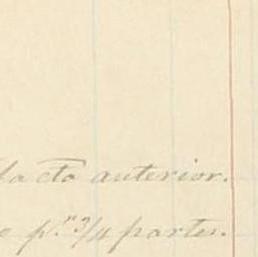 la cta anterior.
e p.r 3/4 partes.